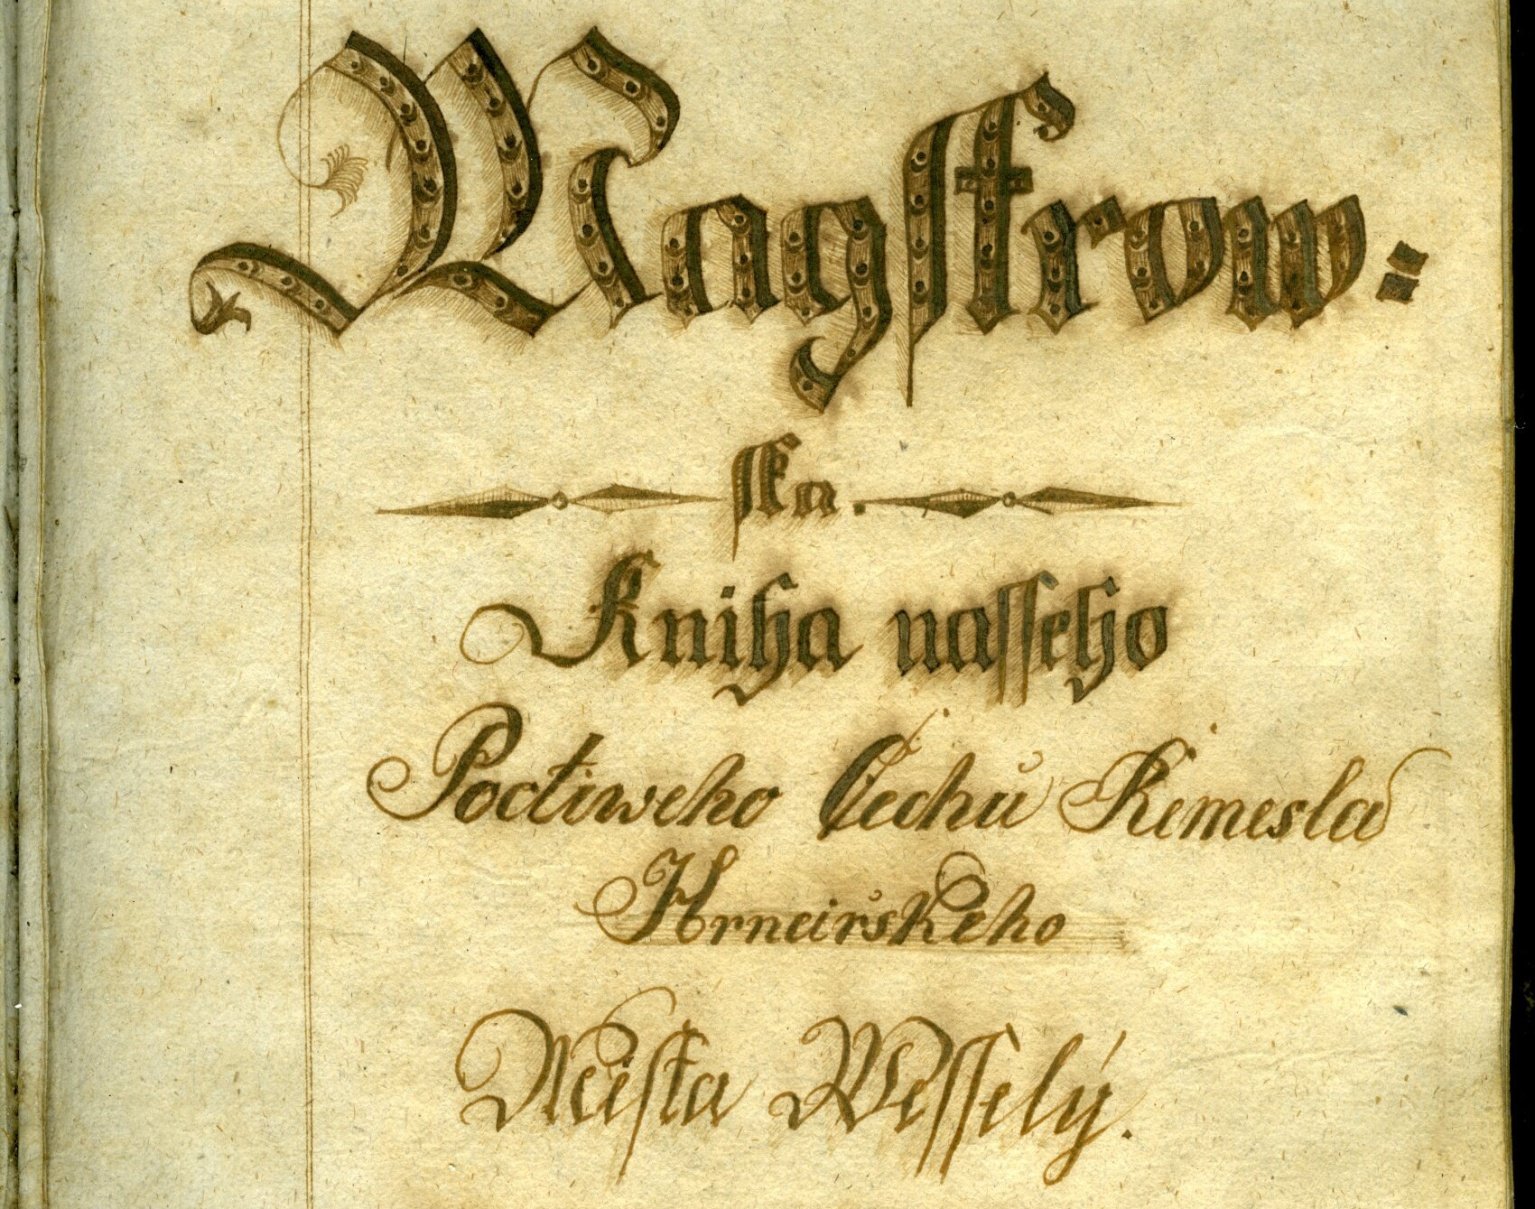 Magstrow=
ska.
Kniha nasseho
Poctiweho Cechu Ržemesla
Hrncirskeho
Mĕista Wesselý.